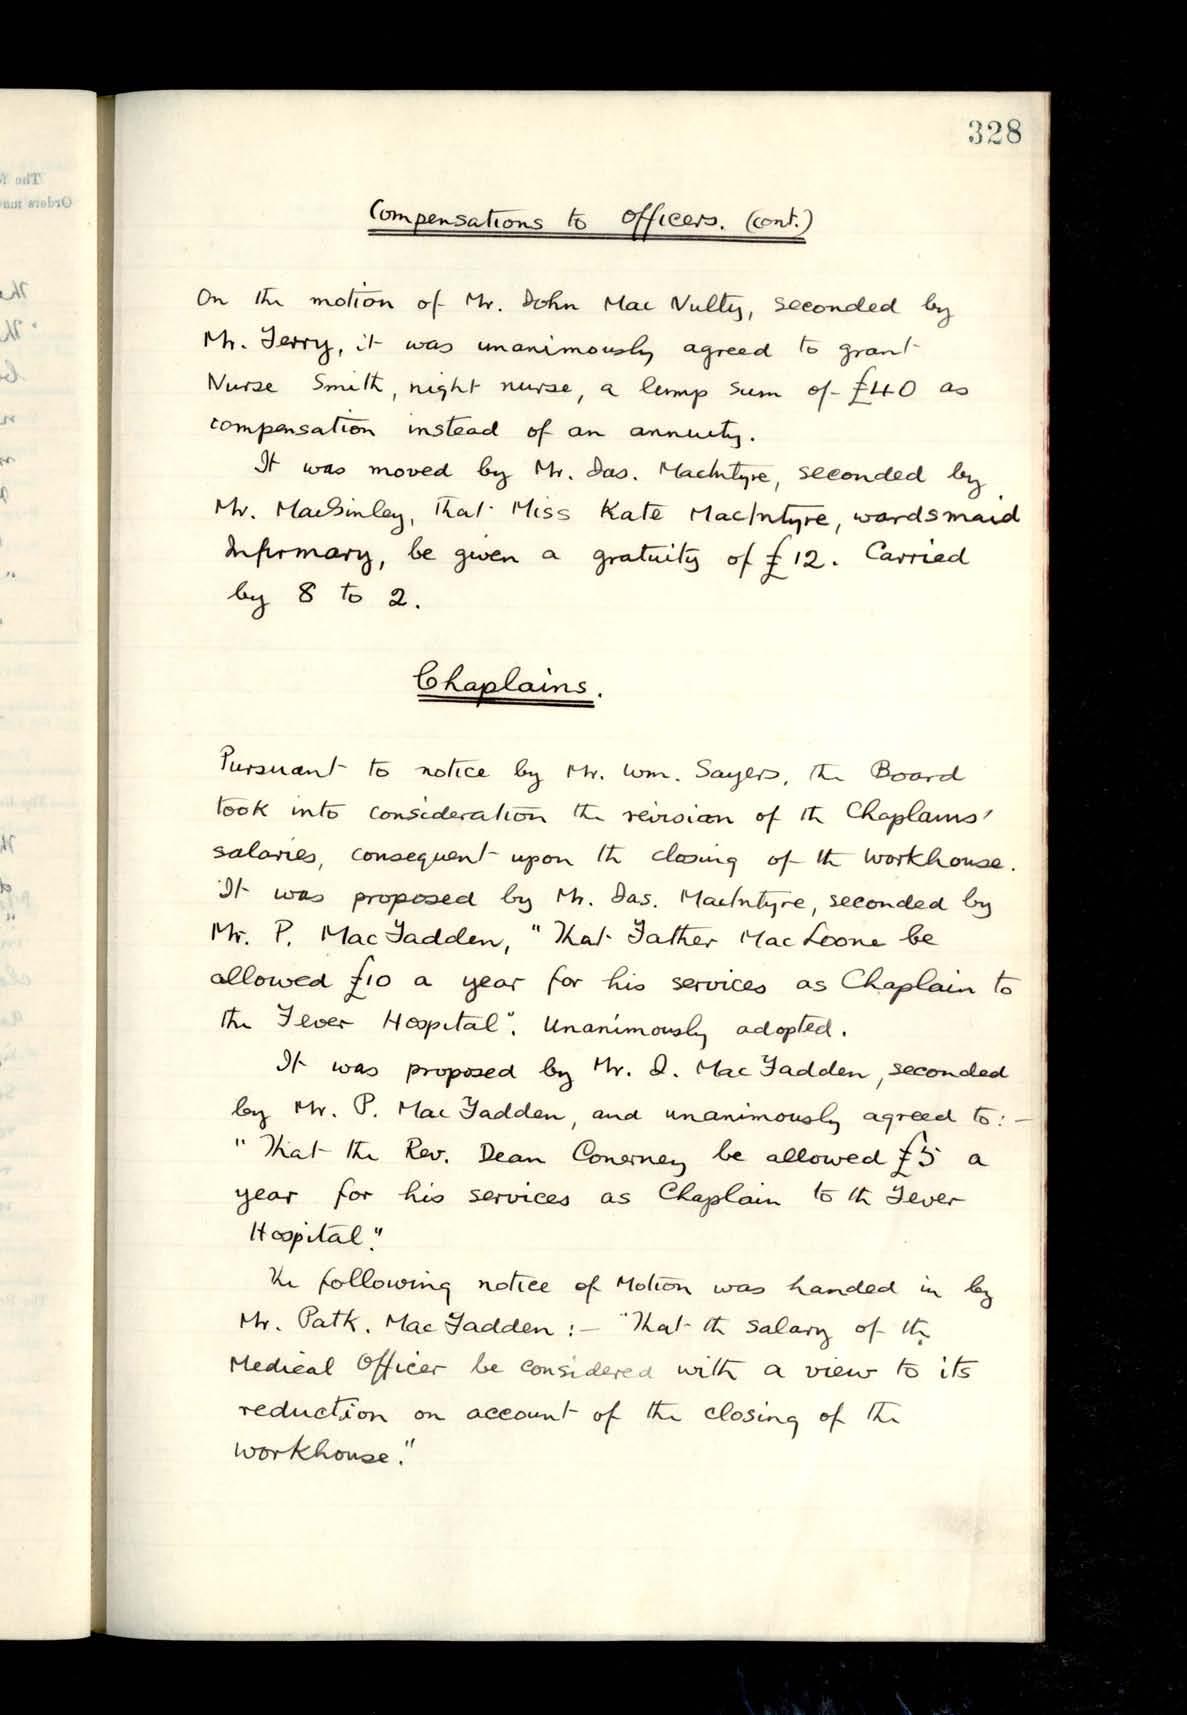 328
Compensations to Officers. (cont.)
On the motion of Mr. John Mac Nulty, seconded by
Mr. Ferry, it was unanimously agreed to grant
Nurse Smith, night nurse, a lump sum of £40 as
compensation instead of an annuity.
It was moved by Mr. Jas. MacIntyre, seconded by
Mr. MacGinley, that Miss Kate MacIntyre, wardsmaid
Infirmary, be given a gratuity of £12. Carried
by 8 to 2.
Chaplains.
Pursuant to notice by Mr. Wm. Sayers, the Board
took into consideration the revision of the Chaplains'
salaries, consequent upon the closing of the workhouse.
It was proposed by Mr. Jas. MacIntyre, seconded by
Mr. P. MacFadden, "That Father MacLoone be
allowed £10 a year for his services as Chaplain to
the Fever Hospital". Unanimously adopted.
It was proposed by Mr. J. MacFadden, seconded
by Mr. P. MacFadden, and unanimously agreed to:-
"That the Rev. Dean Conerney be allowed £5 a
year for his services as Chaplain to the Fever
Hospital."
The following notice of Motion was handed in by
Mr. Patk. MacFadden:- "That the salary of the
Medical Officer be considered with a view to its
reduction on account of the closing of the
workhouse."